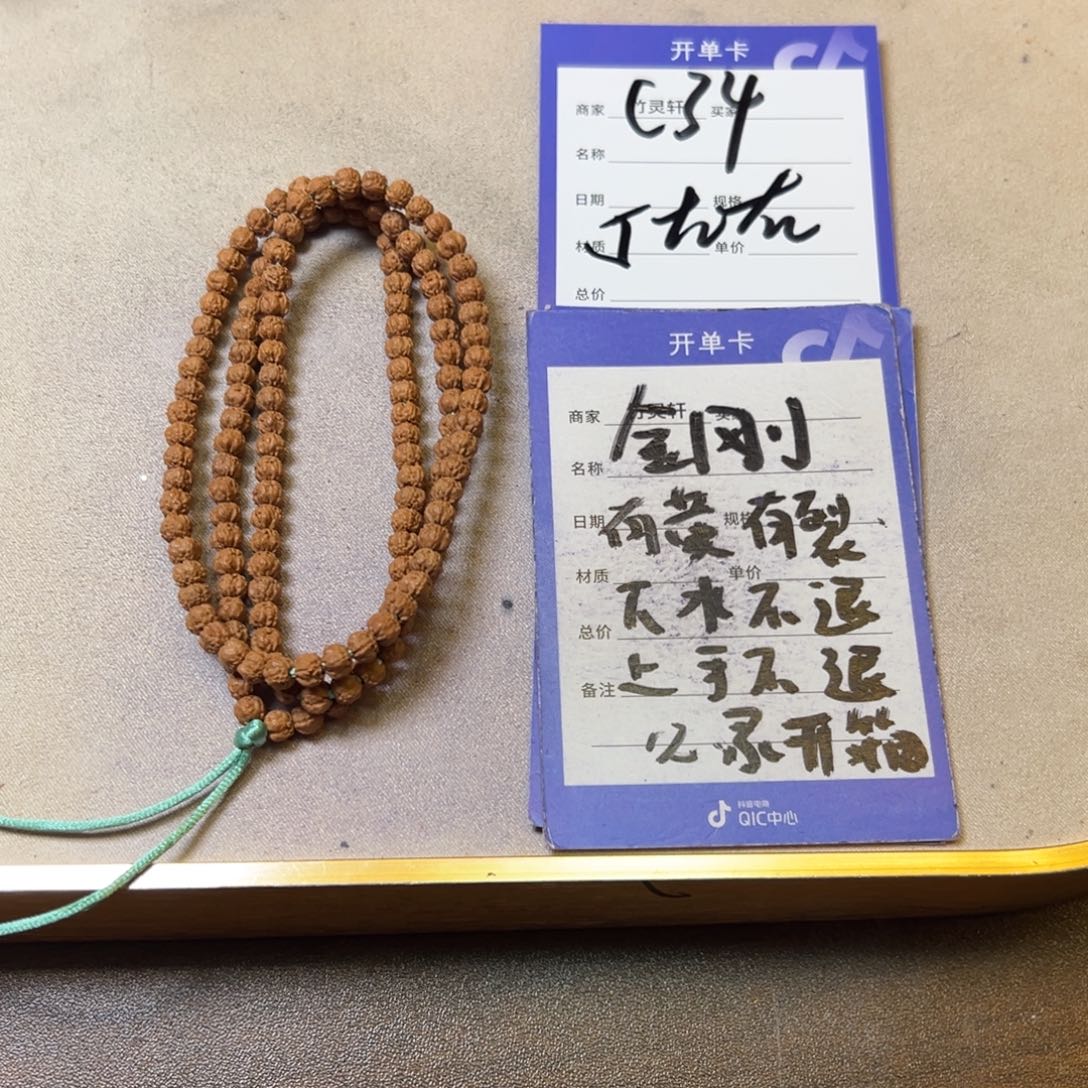 开单卡
商家 竹灵轩 买家
C34
名称
日期 规格
材质 单价
总价
开单卡
商家
金刚
名称
日期 规格
有黄 有裂
材质 单价
下水不退
总价
上手不退
备注
录开箱
抖音电商
QIC中心